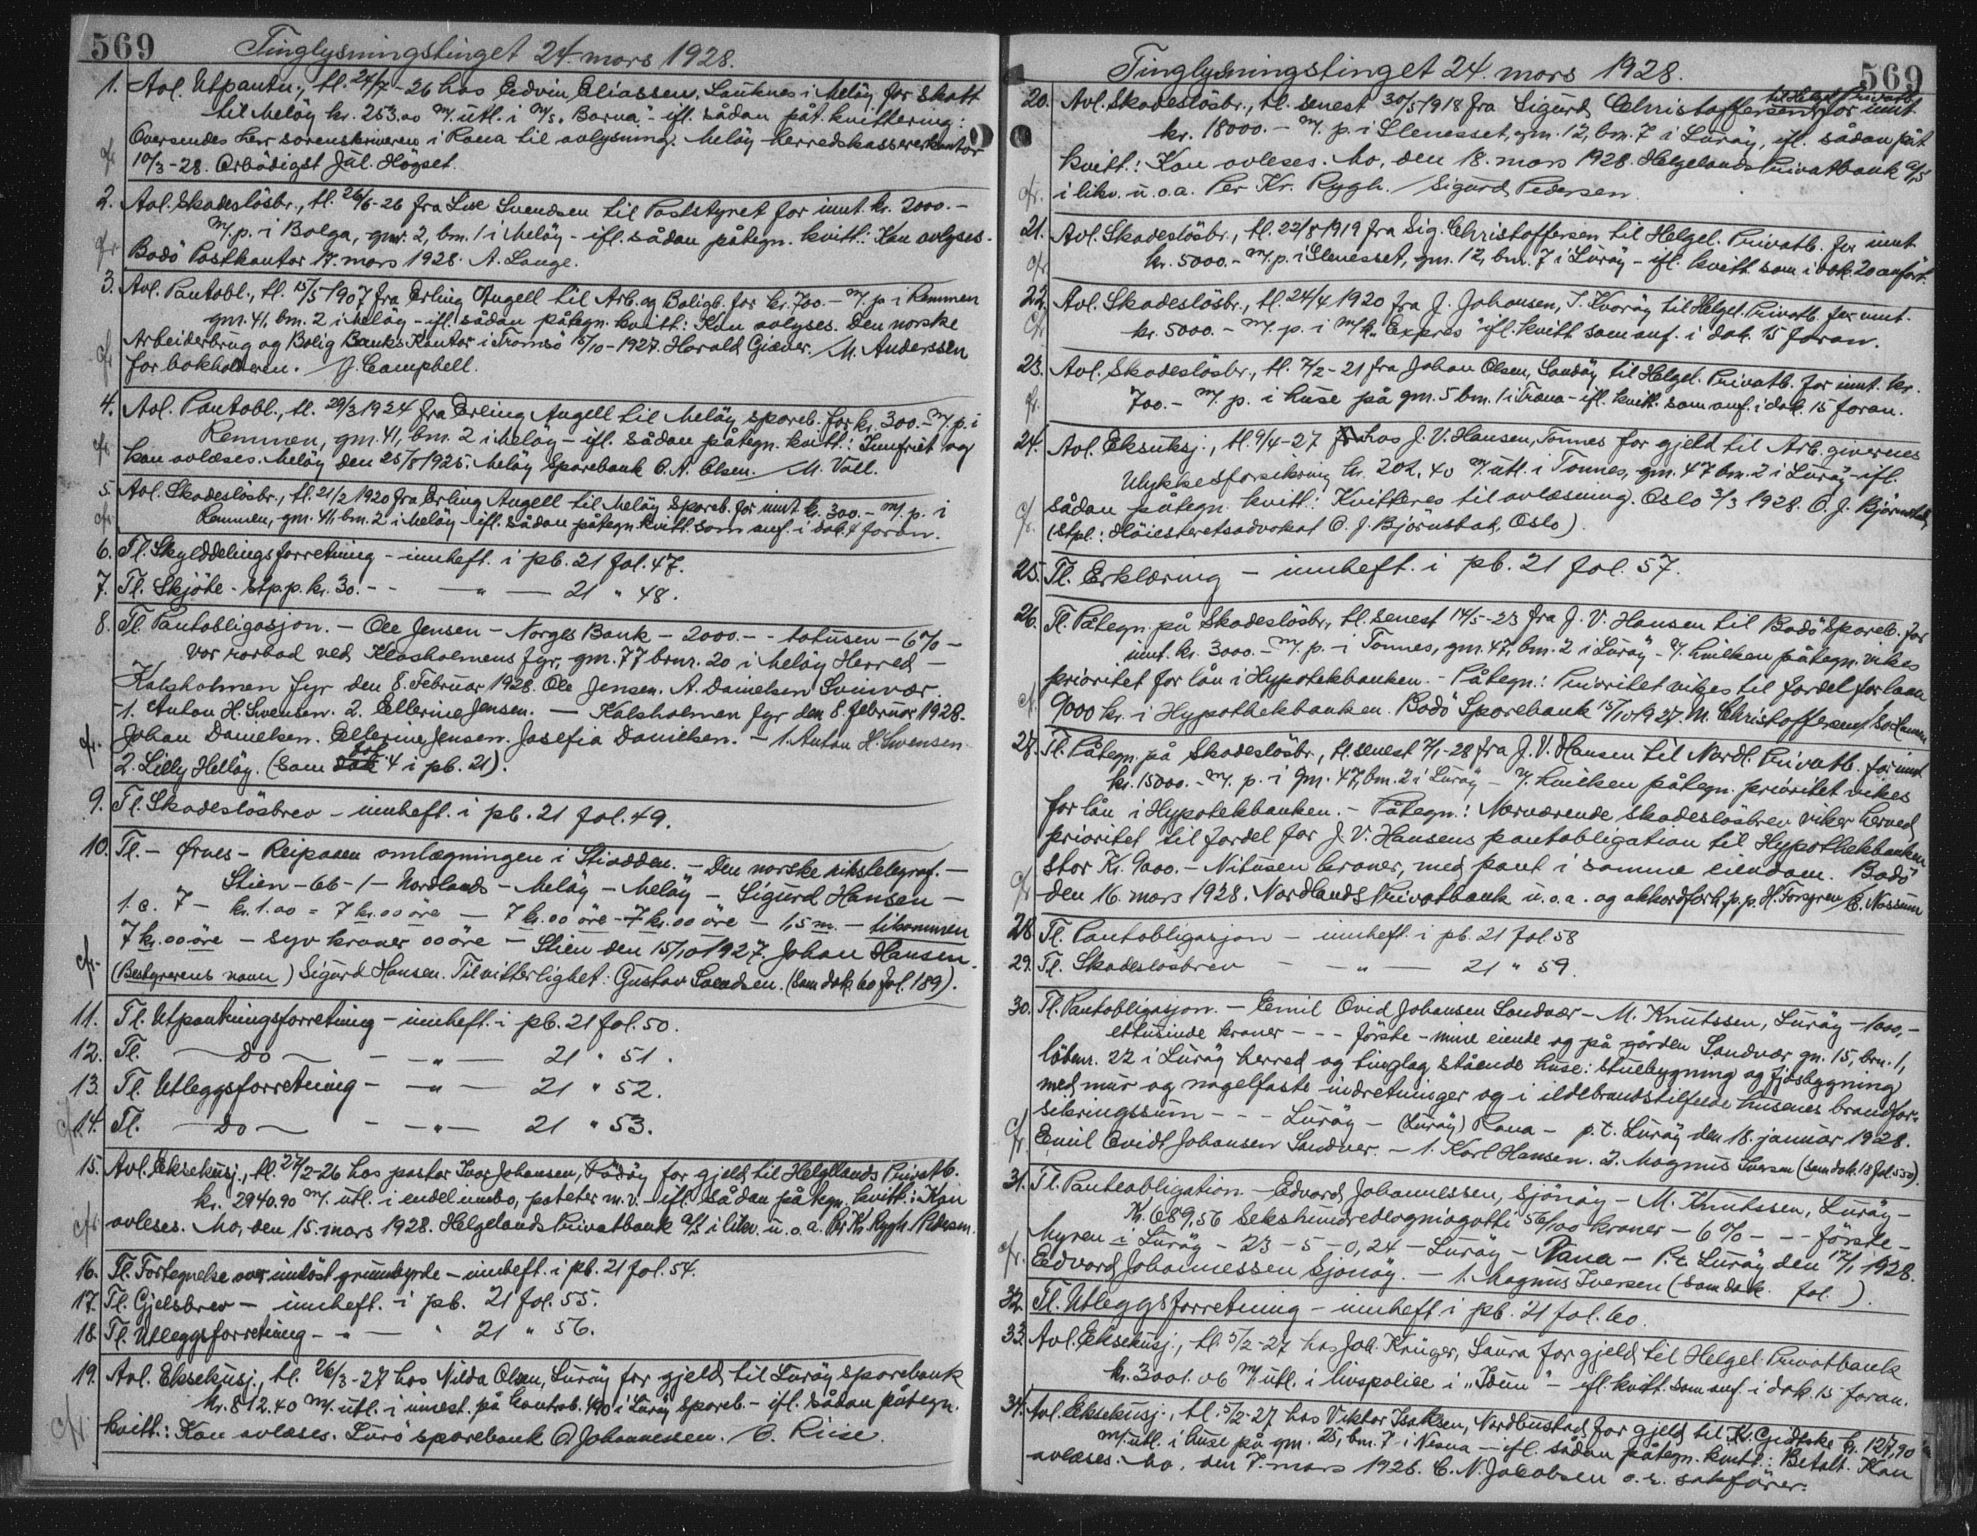 569
Tinglysningstinget 24. mars 1928.
1. Avl. Utpantn., tl. 24/7-26 hos Edvin Eliassen, Sauknes i Meløy for skatt
til Meløy kr. 253.00 m/ utl. i m/s. "Barna" - ifl. sådan påt. kvittering:
Oversendes herr sorenskriveren i Rana til avlysning. Meløy herredskassererkontor
10/3-28. Ærbødigst Jul. Høgset.
2. Avl. Skadesløsbr., tl. 26/6-26 fra Svendsen til Poststyret for innt. kr. 2000.-
m/ p. i Bolga, gnr. 2, bn. 1 i Meløy - ifl. sådan påtegn. kvitt.: Kan avlyses.
Bodø Postkontor 17. mars 1928. A. Lange.
3. Avl. Pantobl., tl. 15/5 1907 fra Erling Angell til Arb. og Boligb. for kr. 700.- m/ p. i Remmen
gm. 41, bm. 2 i Meløy - ifl. sådan påtegn. kvitt: Kan avlyses. Den norske
Arbeiderbrug og Bolig Banks Kontor i Tromsø 15/10-1927. Harald Giæver. M. Anderssen
for bokholderen. J. Campbell.
4. Avl. Pantobl., tl. 29/3 1924 fra Erling Angell til Meløy spareb. for kr. 300.- m/ p. i
Remmen, gm. 41, bm. 2 i Meløy - ifl. sådan påtegn. kvitt.: Innfriet og
kan avlæses. Meløy den 25/8 1925. Meløy Sparebank C. A. Olsen. M. Voll.
5. Avl. Skadesløsbr., tl. 21/2 1920 fra Erling Angell til Meløy Spareb. for innt kr. 300.- m/ p. i
Remmen, gm. 41, bm. 2 i Meløy - ifl. sådan påtegn. kvitt. som anf. i dok. 4 foran.
6. Tl. Skylddelingsforretning - innheft. i pb. 21 fol. 47.
7. Tl. Skjøte - stp.p. kr. 30.- - - " - 21 " 48.
8. Tl. Pantobligasjon. - Ole Jensen - Norges Bank - 2000.- - totusen - 6 % -
vor rorbod ved Klasholmens fyr, gm. 77 brnr. 20 i Meløy Herred -
Kalsholmen fyr den 8. Februar 1928. Ole Jensen. A. Danielsen Svinvær.
- 1. Anton H. Svensen. 2. Ellerine Jensen. - Kalsholmen fyr den 8. februar 1928.
Johan Danielsen. Ellerine Jensen. Josefia Danielsen. - 1. Anton H. Svensen.
2. Lilly Helløy. (Som dok 4 i pb. 21).
9. Tl. Skadesløsbrev - innheft. i pb. 21 fol. 49.
10. Tl. - Ørnes - Reipaaen omlægningen i Stiodden. - Den norske rikstelegraf. -
Stien - 66 - 1 - Nordlands - Meløy - Meløy - Sigurd Hansen -
1. c. 7 - kr. 1.00 = 7 kr. 00 øre - 7 kr. 00 øre - 7 kr. 00 øre - 1,5 m. - tilsammen
7 kr. 00 øre - syv kroner 00 øre - Stien den 15/10 1927. Johan Hansen.
(Bestyrerens navn) Sigurd Hansen. Til vitterlighet: Gustav Svendsen. (Som dok. 60 fol. 189).
11. Tl. Utpantningsforretning - innheft. i pb. 21 fol. 50.
12. Tl. - Do - - " - 21 " 51.
13. Tl. Utleggsforretning - - " - 21 " 52.
14. Tl. - Do - - " - 21 " 53.
15. Avl. Eksekusj., tl. 27/2-26 hos pastor Ivar Johansen, Rødøy for gjeld til Helgelands Privatb.
kr. 2940.90 m/ utl. i endel innbo, poteter m. v. - ifl. sådan påtegn. kvitt.: Kan
avleses. Mo, den 15. mars 1928. Helgelands Privatbank A/S i likv. u. o. a. Per Kr. Rygh. / Pedersen.
16. Tl. Fortegnelse over innløst grunnbyrde - innheft. i pb. 21 fol. 54.
17. Tl. Gjelsbrev - innheft. i pb. 21 fol. 55.
18. Tl. Utleggsforretning - " - " 21 " 56.
19. Avl. Eksekusj., tl. 26/3-27 hos Nilda Olsen, Lurøy for gjeld til Lurøy sparebank
kr. 812.40 m/ utl. i innest. på kontrab. 190 i Lurøy spareb. - ifl. sådan påtegn.
kvitt.: Kan avlæses. Lurø sparebank A Johannessen. C. Riise.
569
Tinglysningstinget 24. mars 1928.
til Helgel. Privatb.
20. Avl. Skadesløsbr., tl. senest 30/5 1918 fra Sigurd Christoffersen for innt.
kr. 18000.- m/ p. i Slenesset, gm. 12, bm. 7 i Lurøy, ifl. sådan påt
kvitt.: Kan avleses. Mo, den 18. mars 1928. Helgelands Privatbank A/S
i likv. u. o. a. Per Kr. Rygh. / Sigurd Pedersen.
21. Avl. Skadesløsbr., tl. 22/8 1919 fra Sig. Christoffersen til Helgel. Privatb. for innt.
kr. 5000.- m/ p. i Slenesset, gm. 12, bm. 7 i Lurøy - ifl. kvitt som i dok. 20 anført.
22. Avl. Skadesløsbr., tl. 24/4 1920 fra J. Johansen, T. Kvarøy til Helgel. Privatb. for innt.
kr. 5000.- m/ p. i m/k. "Expres" ifl. kvitt som anf. i dok. 15 foran.
23. Avl. Skadesløsbr., tl. 7/2-21 fra Johan Olsen, Sandøy til Helgel. Privatb. for innt. kr.
700.- m/ p. i huse på gm. 5 bm. 1 i Træna - ifl. kvitt. som anf. i dok. 15 foran.
24. Avl. Eksuksj., tl. 9/4-27 hos J. V. Hansen, Tonnes for gjeld til Arb.givernes
Ulykkesforsikring kr. 202.40 m/ utl. i Tonnes, gm. 47 bm. 2 i Lurøy - ifl.
sådan påtegn. kvitt.: Kvitteres til avlæsning. Oslo 3/3 1928. O. J. Bjørnstad,
(Stpl.: Høiesteretsadvokat O. J. Bjørnstad, Oslo).
25. Tl. Erklæring - innheft. i pb. 21 fol. 57.
26. Tl. Påtegn. på Skadesløsbr., tl. senest 14/5-23 fra J. V. Hansen til Bodø Spareb. for
innt. kr. 3000.- m/ p. i Tonnes, gm. 47, bm. 2 i Lurøy - v/ hvilken påtegn. vikes
prioritet for lån i Hypotekbanken. - Påtegn.: Prioritet vikes til fordel for laan
9000 kr. i Hypothekbanken. Bodø Sparebank 15/10 1927. M. Christoffersen
27. Tl. Påtegn. på Skadesløsbr., tl senest 7/1-28 fra J. V. Hansen til Nordl. Privatb. for innt.
kr. 15000.- m/ p. i gm. 47, bm. 2 i Lurøy - v/ hvilken påtegn. prioritet vikes
for lån i Hypotekbanken. - Påtegn.: Nærværende skadesløsbrev viker herved
prioritet til fordel for J. V. Hansens pantobligation til Hypothekbanken
stor Kr. 9000.- Nitusen kroner, med pant i samme eiendom. Bodø
den 16. mars 1928. Nordlands Privatbank u. o. a. og akkordforh. p. p. H. Torgren / C. Nossum
28. Tl. Pantobligasjon - innheft. i pb. 21 fol. 58
29. Tl. Skadesløsbrev - - " - 21 " 59.
30. Tl. Pantobligasjon. - Emil Ovid Johansen Sandvær - M. Knutssen, Lurøy - 1000,-
ettusinde kroner - - - første - mine eiende og på gården Sandvær gn. 15, brn. 1,
løbenr. 22 i Lurøy herred og tinglag stående huse: stuebygning og fjøsbygning
med mur og nagelfaste indretninger og i ildebrandstilfelde husenes brandfor-
sikringssum - - - Lurøy - (Lurøy) Rana - p. t. Lurøy den 18. januar 1928.
Emil Ovidt Johansen Sandver. - 1. Karl Hansen. 2. Magnus Iversen (Som dok. 18 fol. 550).
31. Tl. Panteobligation - Edvard Johannessen, Sjonøy - M. Knutssen, Lurøy -
Kr. 689,56 Sekshundredeogniogotti 56/100 kroner - 6 % - - - første -
Myren i Lurøy - 23 - 5 - 0,24 - Lurøy - Rana - P. t. Lurøy den 17/1 1928.
Edvard Johannessen Sjonøy. - 1. Magnus Iversen (Som dok. fol. ).
32. Tl. Utleggsforretning - innheft. i pb. 21 fol. 60.
33. Avl. Eksekusj., tl. 5/2-27 hos Joh. Krüger, Saura for gjeld til Helgel. Privatbank
kr. 3001.06 m/ utl. i livspolice i "Idun" - ifl. kvitt. som anf. i dok. 15 foran.
34. Avl. Eksekusj., tl. 5/2-27 hos Viktor Isaksen, Nordbustad for gjeld til K. Gjetske kr. 127,90
m/ utl. i huse på gm. 25, bm. 7 i Nesna - ifl. sådan påtegn. kvitt.: Betalt. Kan
avlæses. Mo, den 7. mars 1928. C. N. Jacobsen o. r. sakfører.